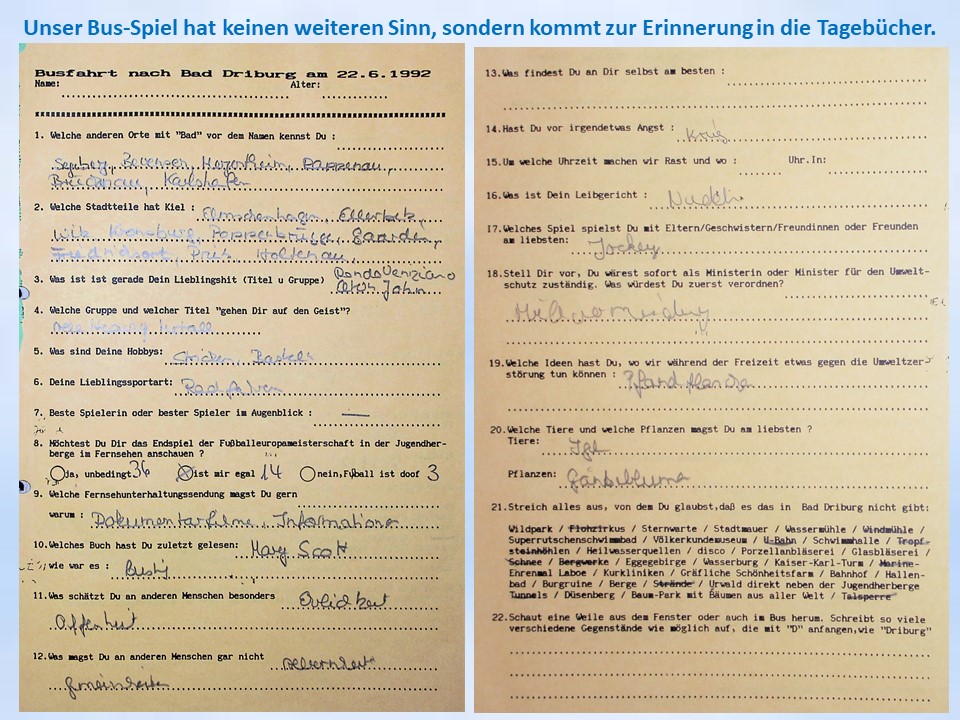 Unser Bus-Spiel hat keinen weiteren Sinn, sondern kommt zur Erinnerung in die Tagebücher.
Busfahrt nach Bad Driburg am 22.6.1992
Name: Alter:
1. Welche anderen Orte mit "Bad" vor dem Namen kennst Du :
Segeberg, Bevensen, Mergentheim, Rappenau,
Karlshafen
2. Welche Stadtteile hat Kiel : Elmschenhagen, Ellerbek,
Wik, Kronsburg, Poppenbrügge, Gaarden,
Friedrichsort, Pries, Holtenau,
3. Was ist ist gerade Dein Lieblingshit (Titel u Gruppe) Rondo Veniziano
Elton John
4. Welche Gruppe und welcher Titel "gehen Dir auf den Geist"?
5. Was sind Deine Hobbys: Stricken, Basteln
6. Deine Lieblingssportart: Radfahren
7. Beste Spielerin oder bester Spieler im Augenblick : —
8. Möchtest Du Dir das Endspiel der Fußballeuropameisterschaft in der Jugendher-
berge im Fernsehen anschauen ?
Ja, unbedingt 36 ist mir egal 14 nein, Fußball ist doof 3
9. Welche Fernsehunterhaltungssendung magst Du gern
warum : Dokumentarfilme, Informationen
10.Welches Buch hast Du zuletzt gelesen: Mary Scott
wie war es : lustig
11.Was schätzt Du an anderen Menschen besonders Ehrlichkeit
Offenheit
12.Was magst Du an anderen Menschen gar nicht
Gemeinheiten
13.Was findest Du an Dir selbst am besten :
14.Hast Du vor irgendetwas Angst : Krieg
15.Um welche Uhrzeit machen wir Rast und wo : Uhr.In:
16.Was ist Dein Leibgericht : Nudeln
17.Welches Spiel spielst Du mit Eltern/Geschwistern/Freundinnen oder Freunden
am liebsten: Jockey
18.Stell Dir vor, Du wärest sofort als Ministerin oder Minister für den Umwelt-
schutz zuständig. Was würdest Du zuerst verordnen?
19.Welche Ideen hast Du, wo wir während der Freizeit etwas gegen die Umweltzer-
störung tun können : Pfandflasche
20.Welche Tiere und welche Pflanzen magst Du am liebsten ?
Tiere: Igel
Pflanzen: Gänseblume
21.Streich alles aus, von dem Du glaubst,daß es das in Bad Driburg nicht gibt:
Wildpark / Flohzirkus / Sternwarte / Stadtmauer / Wassermühle / Windmühle /
Superrutschenschwimmbad / Völkerkundemuseum / U-Bahn / Schwimmhalle / Tropf-
steinhöhlen / Heilwasserquellen / disco / Porzellanbläserei / Glasbläserei /
Schnee / Bergwerke / Eggegebirge / Wasserburg / Kaiser-Karl-Turm / Marine-
Ehrenmal Laboe / Kurkliniken / Gräfliche Schönheitsfarm / Bahnhof / Hallen-
bad / Burgruine / Berge / Strände / Urwald direkt neben der Jugendherberge
Tunnels / Düsenberg / Baum-Park mit Bäumen aus aller Welt / Talsperre
22.Schaut eine Weile aus dem Fenster oder auch im Bus herum. Schreibt so viele
verschiedene Gegenstände wie möglich auf, die mit "D" anfangen,wie "Driburg"